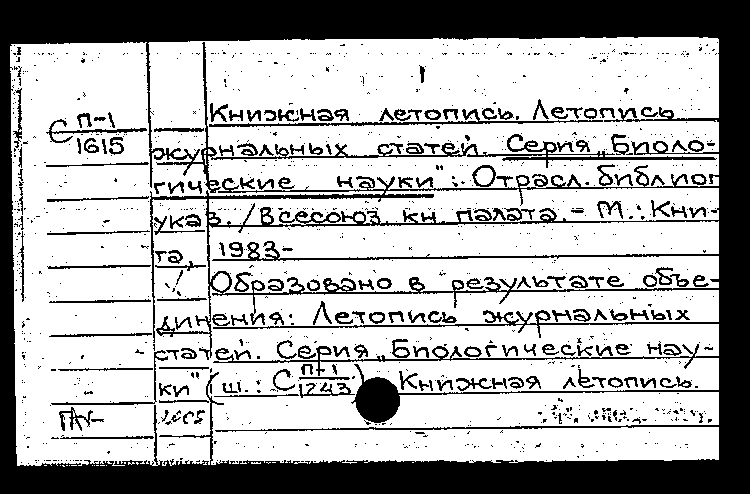 Книжная летопись. Летопись
С П-1
1615
журнальных статей. Серия „Биоло-
гические науки": Отрасл. библиог
указ. / Всесоюз. кн. палата. - М.: Кни-
га, 1983-
Образовано в результате объе-
динения: Летопись журнальных
статей. Серия „Биологические нау-
ки" (ш.: С П-1
1243) Книжная летопись.